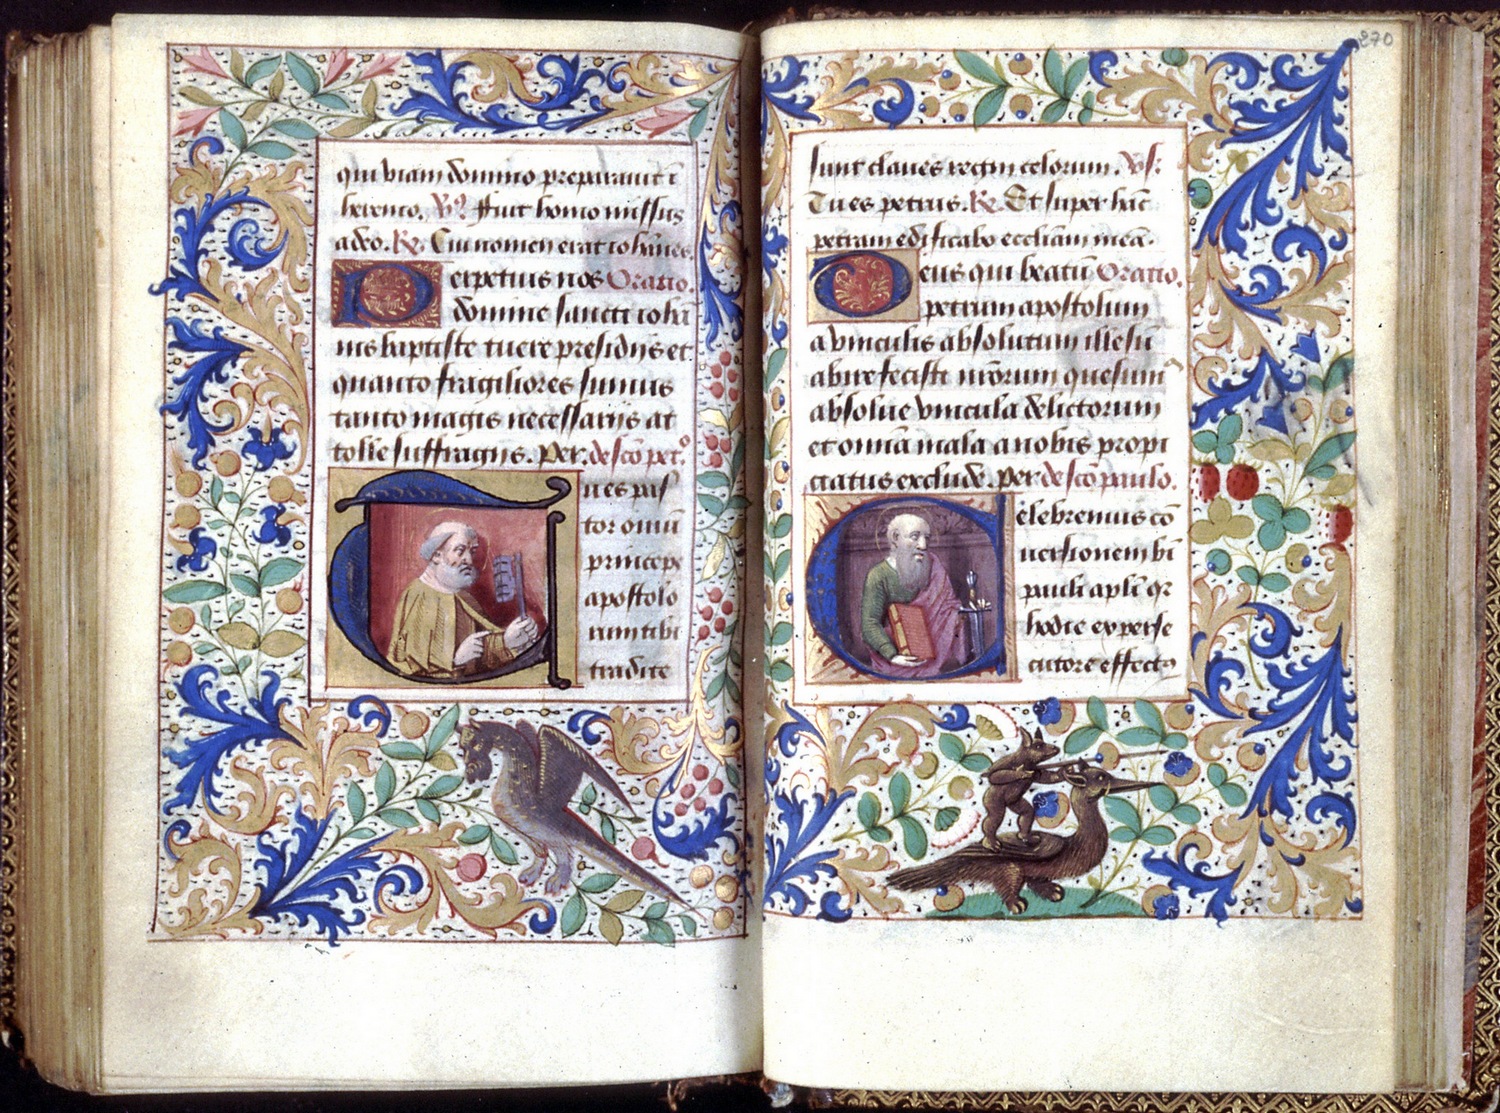 qui viam domino preparavit ĩ
heremo. V̸. Fuit homo missus
a deo. R̸. Cui nomen erat iohãnes.
Perpetuis nos Oratio.
domine sancti ioha
nis baptiste tuere presidiis et
quanto fragiliores sumus
tanto magis necessariis at
tolle suffragiis. Per. de scõ petº.
Tu es pas
tor oviũ
princeps
apostolo
rum tibi
tradite
270
sunt claves regni celorum. Vs:
Tu es petrus. R̸. Et super hãc
petram edificabo eccliam meã.
Deus qui beatũ Oratio.
petrum apostolum
a vinculis absolutum illesũ
abire fecisti nr̃orum quesum̃
absolve vincula delictorum
et omnia mala a nobis propi
ciatus exclude. Per de scõ paulo.
Celebremus cõ
versionem bĩ
pauli apl̃i qr
hodie ex perse
cutore effectꝰ